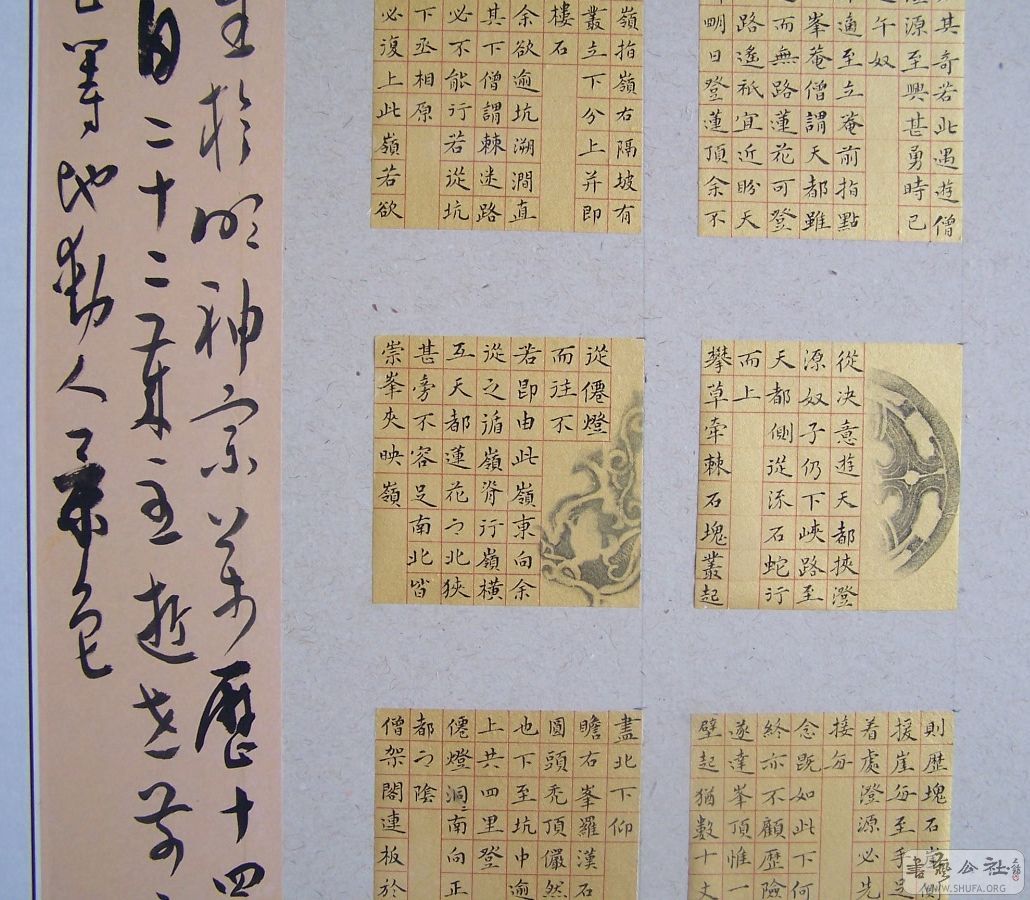 其奇若此遇遊僧
源至興甚勇時已
午奴
適至立菴前指點
峯菴僧謂天都雖
而無路蓮花可登
路遙祇宜近盼天
明日登蓮頂余不
嶺指嶺右隔坡有
叢立下分上并即
樓石
余欲逾坑溯澗直
其下僧謂棘迷路
必不能行若從坑
下丞相原
必復上此嶺若欲
從決意遊天都挾澄
源奴子仍下峽路至
天都側從流石蛇行
而上
攀草牽棘石塊叢起
從僊燈
而往不
若即由此嶺東向余
從之循嶺脊行嶺橫
互天都蓮花之北狹
甚旁不容足南北皆
崇峯夾映嶺
則歷塊石
援崖每至手足
着處澄源必先
接每
念既如此下何
終亦不顧歷險
遂達峯頂惟一
壁起猶數十丈
盡北下仰
瞻右峯羅漢石
圓頭禿頂儼然
也下至坑中逾
上共四里登
僊燈洞〻南向正
都之陰
僧架閣連板於
生於明神宗萬歷十四
月二十二逝世前
等地動人景色
書藝公社
WWW.SHUFA.ORG